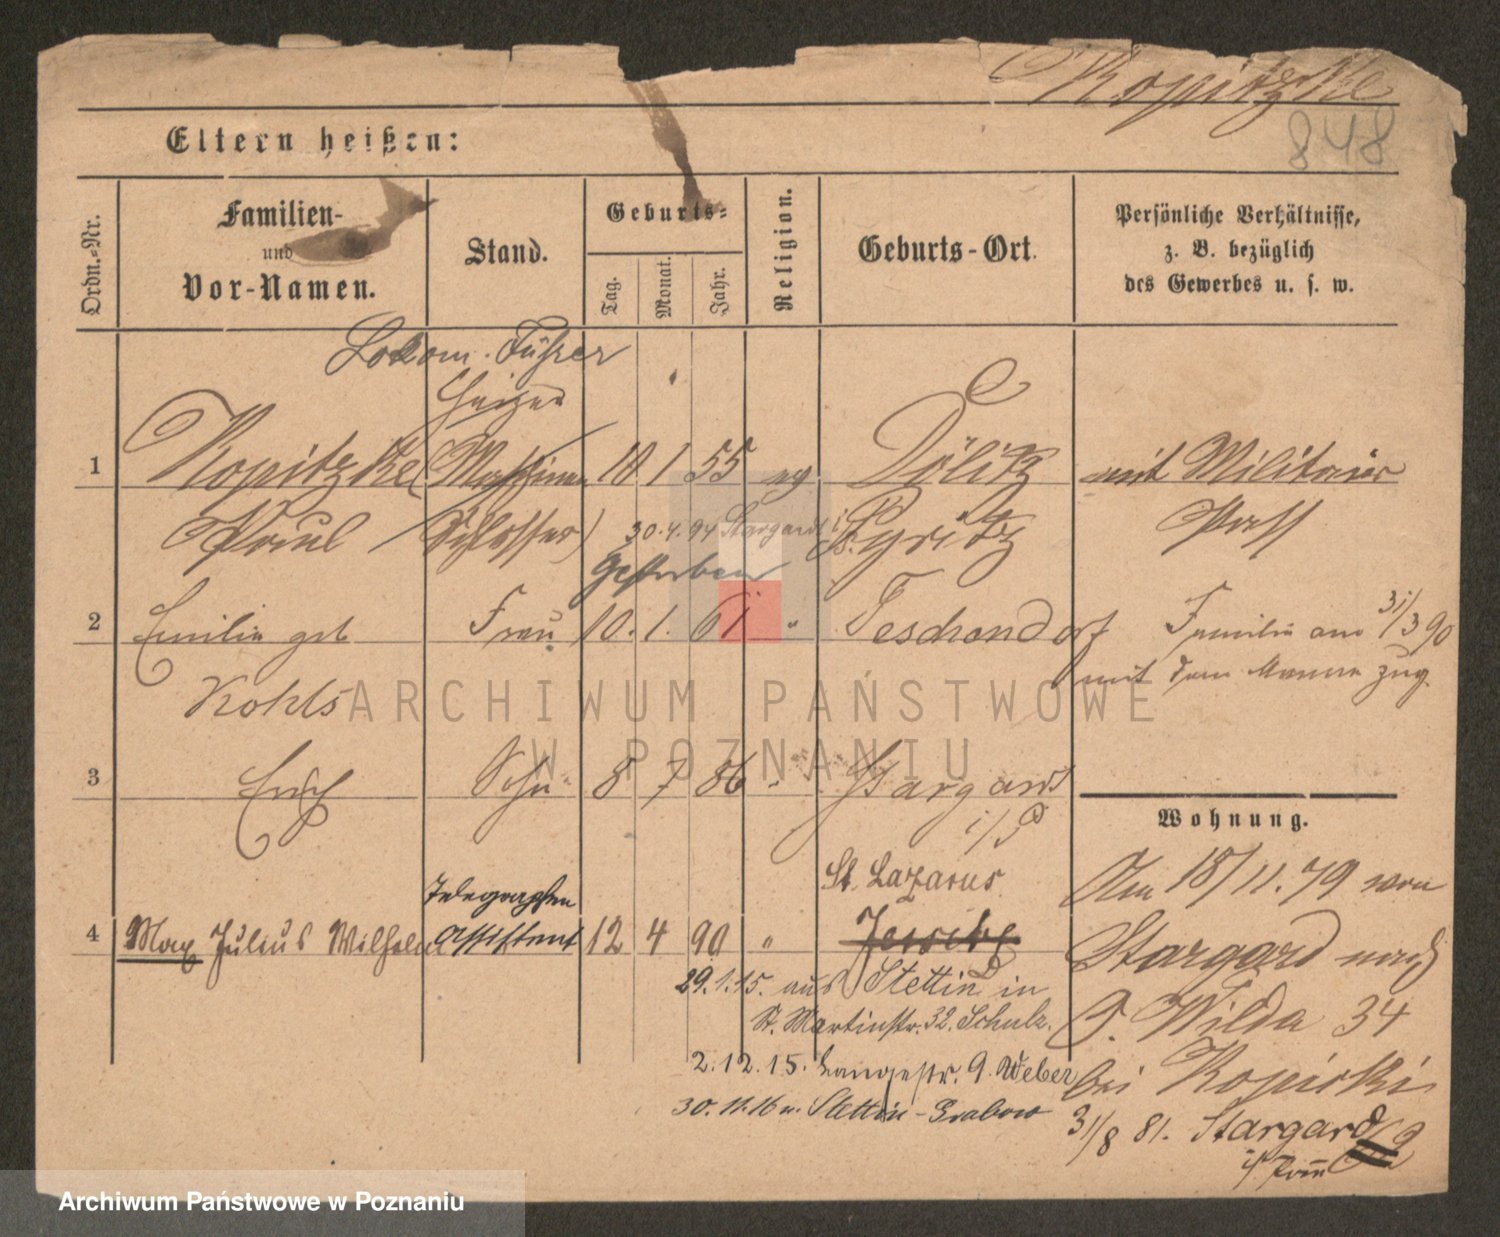 Kopitzke
848
Eltern heißen:
Ordn.-Nr.
Familien-
und
Vor-Namen.
Stand.
Geburts-
Tag.
Monat.
Jahr.
Religion.
Geburts-Ort.
Persönliche Verhältnisse,
z. B. bezüglich
des Gewerbes u. s. w.
Lokom. Führer
Heizer
1 Kopitzke (Maschinen 10 1 55 ev Dölitz mit Militair
Paul Schlosser) 30.4.94 Stargard i/P. Pyritz Pass
gestorben
2 Emilie geb Frau 10. 1. 61 " Teschendorf Familie am 31/3 90
Kohls mit dem Manne zug.
3 Erich Sohn 8 7 86 " Stargard
i/P
Wohnung.
St. Lazarus
Am 18/11. 79 von
Telegraphen
4 Max Julius Wilhelm Assistent 12 4 90 " Jersitz
Stargard nach
29.1.15. aus Stettin in
St. Martinstr. 32. Schulz.
O. Wilda 34
2.12.15. Langestr. 9. Weber
bei Kopicki
30.11.16 n. Stettin-Grabow
31/8 81. Stargard
i/Pom
ARCHIWUM PAŃSTWOWE
W POZNANIU
Archiwum Państwowe w Poznaniu